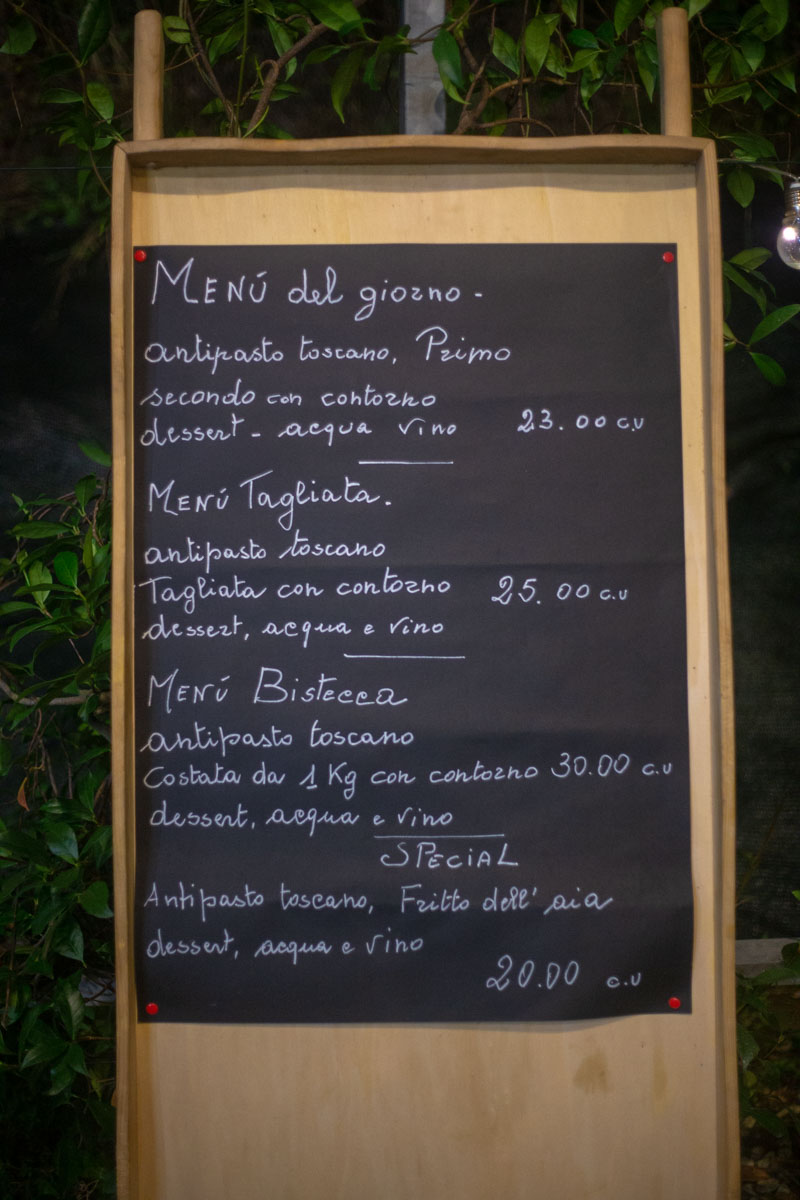 MENÚ del giorno -
antipasto toscano, Primo
secondo con contorno
dessert - acqua vino 23.00 c.u
MENÚ Tagliata.
antipasto toscano
Tagliata con contorno 25.00 c.u
dessert, acqua e vino
MENÚ Bistecca
antipasto toscano
Costata da 1 Kg con contorno 30.00 c.u
dessert, acqua e vino
SPECIAL
Antipasto toscano, Fritto dell'aia
dessert, acqua e vino
20.00 c.u